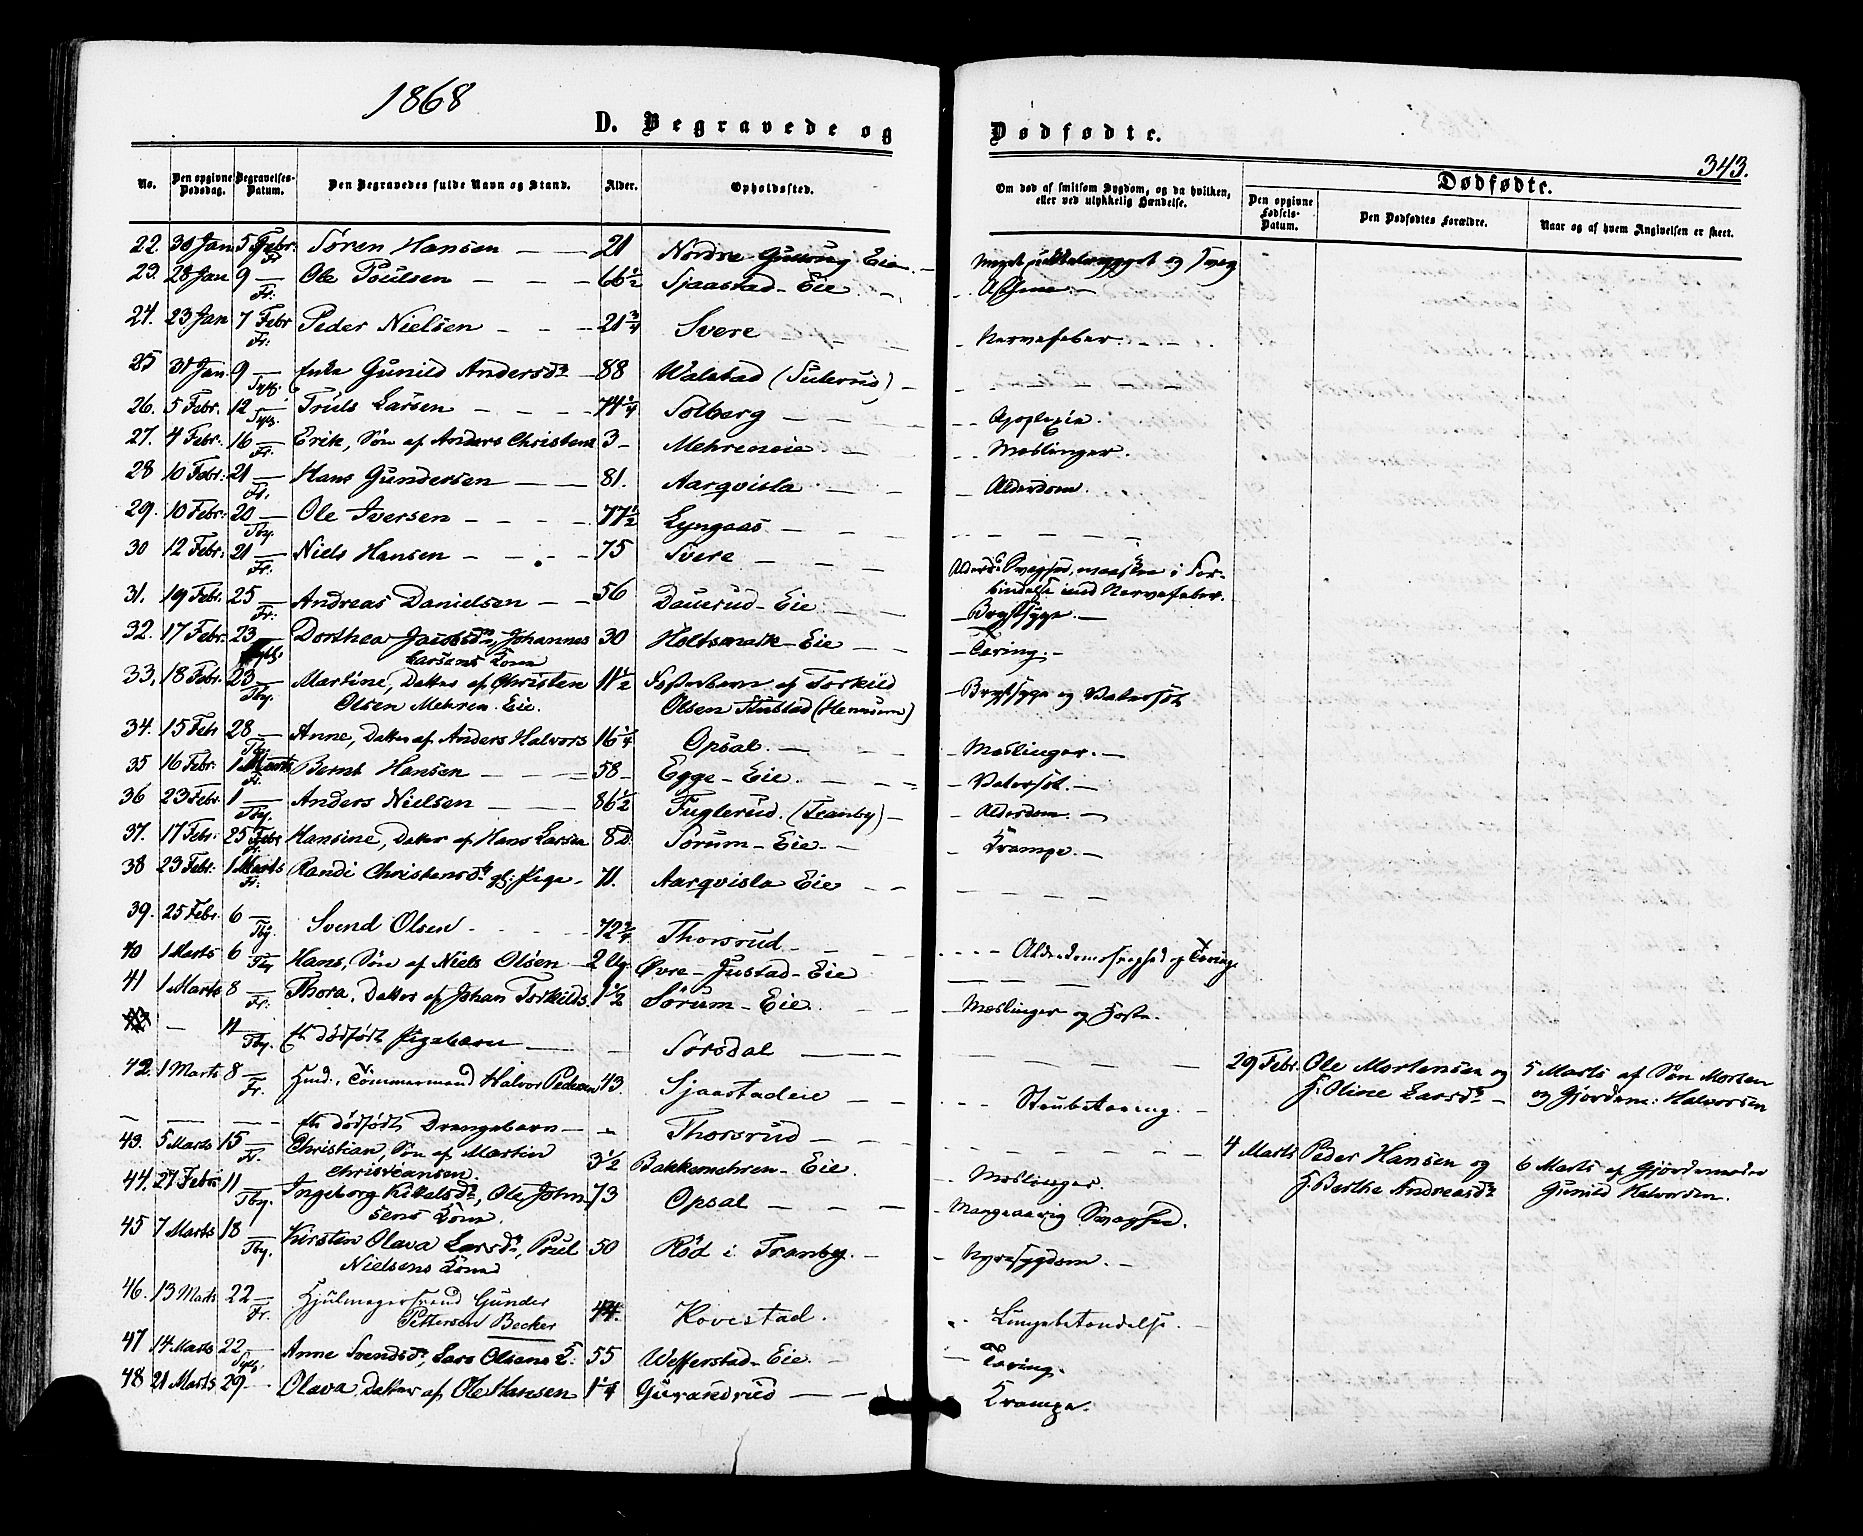 1868
D. Begravede og
Dødfødte.
343.
No.
Den opgivne Dødsdag.
Begravelses-Datum.
Den Begravedes fulde Navn og Stand.
Alder.
Opholdssted.
Om død af smitsom Sygdom, og da hvilken, eller ved ulykkelig Hændelse.
Dødfødte.
Den opgivne Fødsels-Datum.
Den Dødfødtes Forældre.
Naar og af hvem Angivelsen er skeet.
22. 30 Jan 5 Febr: Fr Søren Hansen 21 Nordre Eie og
23. 28 Jan 9 — Fr. Ole Poulsen 66½ Sjaastad-Eie
24. 23 Jan 7 Febr Fr: Peder Nielsen 21¾ Svere Nervefeber
25 31 Jan. 9 — Enke Gunild Andersdr 88 Walstad
26. 5 Febr. 12 — Truls Larsen 74¼ Solberg Apoplexia.
27. 4 Febr. 16 — Fr. Erik, Søn af Anders Christens 3 Mehreneie Meslinger.
28 10 Febr: 21 — Fr. Hans Gundersen 81. Aarqvisla Alderdom.
29. 10 Febr: 20 — Tby. Ole Iversen 77½ Lyngaas
30 12 Febr: 21 — Fr. Niels Hansen 75 Svere Svaghed, maaskee i For-
bindelse med Nervefeber.
31. 19 Febr. 25 — Fr: Andreas Danielsen 56 Dauerud-Eie Brystsyge.
32. 17 Febr. 23 — Dorthea Jacobsdr, Johannes 30 Holtsmark-Eie Tæring.
Larsens Kone
33. 18 Febr. 23 — Tby. Martine, Datter af Christen 11½ Fosterbarn af Torkild Brystsyge og Vatersot
Olsen Mehren-Eie. Olsen
34. 15 Feb 28 — Tby. Anne, Datter af Anders Halvors 16¼ Opsal. Meslinger.
35 16 Febr. 1 Marts Fr. Bernt Hansen 58 Egge-Eie. Vatersot.
36 23 Febr. 1 — Tby. Anders Nielsen 86½ Fuglerud. (Tranby) Alderdom.
37. 17 Febr: 25 Febr Fr. Hansine, Datter af Hans Larsen 8 D. Sørum-Eie Krampe.
38 23 Febr: 1 Marts Fr: Randi Christensdr gl: Pige 71. Aarqvisla Eie
39. 25 Febr. 6 — Tby. Svend Olsen 72¾ Thorsrud Alderdomssvaghed og Tæring
40 1 Marts 6 — Tby Hans, Søn af Niels Olsen 2 Ug. Øvre-Justad-Eie
41 1 Marts 8 — Fr. Thora, Datter af Johan Torkilds. 1½ Sørum-Eie. Meslinger og Hoste.
— 11 — Tby. Et dødfødt Pigebarn Sørsdal 29 Febr. Ole Mortensen og 5 Marts af Søn Morten
H: Oline Larsdr og Gjordem: Halvorsen
42. 1 Marts 8 — Fr. Tømmermand Halvor Pedersen 43. Sjaastadeie Strubetæring.
— Et dødfødt Drengebarn Thorsrud 4 Marts Peder Hansen og 6 Marts af Gjordemoder
H: Berthe Andreasdr Gunild Halvorsen.
43. 5 Marts 15 — Fr. Christian, Søn af Martin 3½ Bakkemehren-Eie. Meslinger.
Christiansen.
44. 27 Febr 11 — Tby. Ingeborg Ole John 73 Opsal Mangeaarig Svaghed.
sens Kone.
45 7 Marts 18 — Tby. Kirsten Olava Larsdr, Poul 50 Rød i Tranby. Nyresygdom.
Nielsens Kone
46. 13 Marts 22 — Fr. Hjulmagersvend Gunder 44. Kovestad. Lungebetændelse.
Pettersen Becker
47 14 Marts 22 — Anne Svendsdr, Lars Olsens K. 55 Wefferstad-Eie. Tæring.
48 21 Marts 29 — Olava, Datter af Ole Hansen 1¼ Gurandrud Krampe.